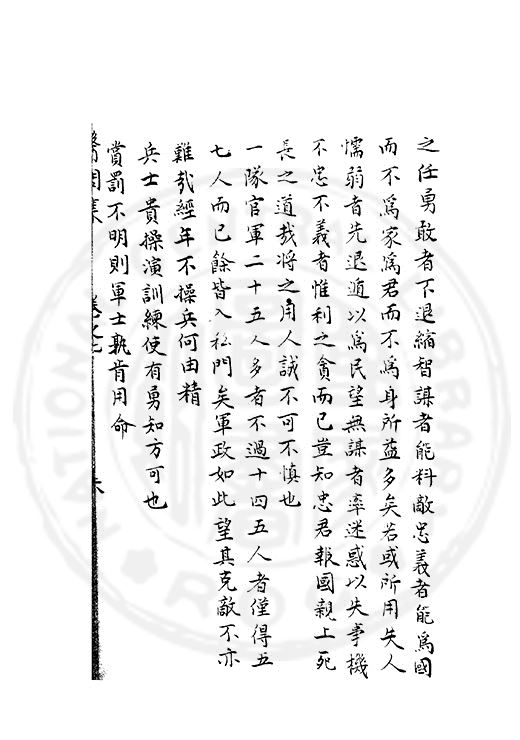 之任勇敢者下退縮智謀者能料敵忠義者能爲國
而不爲家爲君而不爲身所益多矣若或所用失人
懦弱者先退遁以爲民望無謀者率迷惑以失事機
不忠不義者惟利之貪而已豈知忠君報國親上死
長之道哉將之用人誠不可不慎也
一隊官軍二十五人多者不過十四五人者僅得五
七人而已餘皆入私門矣軍政如此望其克敵不亦
難哉經年不操兵何由精
兵士貴操演訓練使有勇知方可也
賞罰不明則軍士孰肯用命